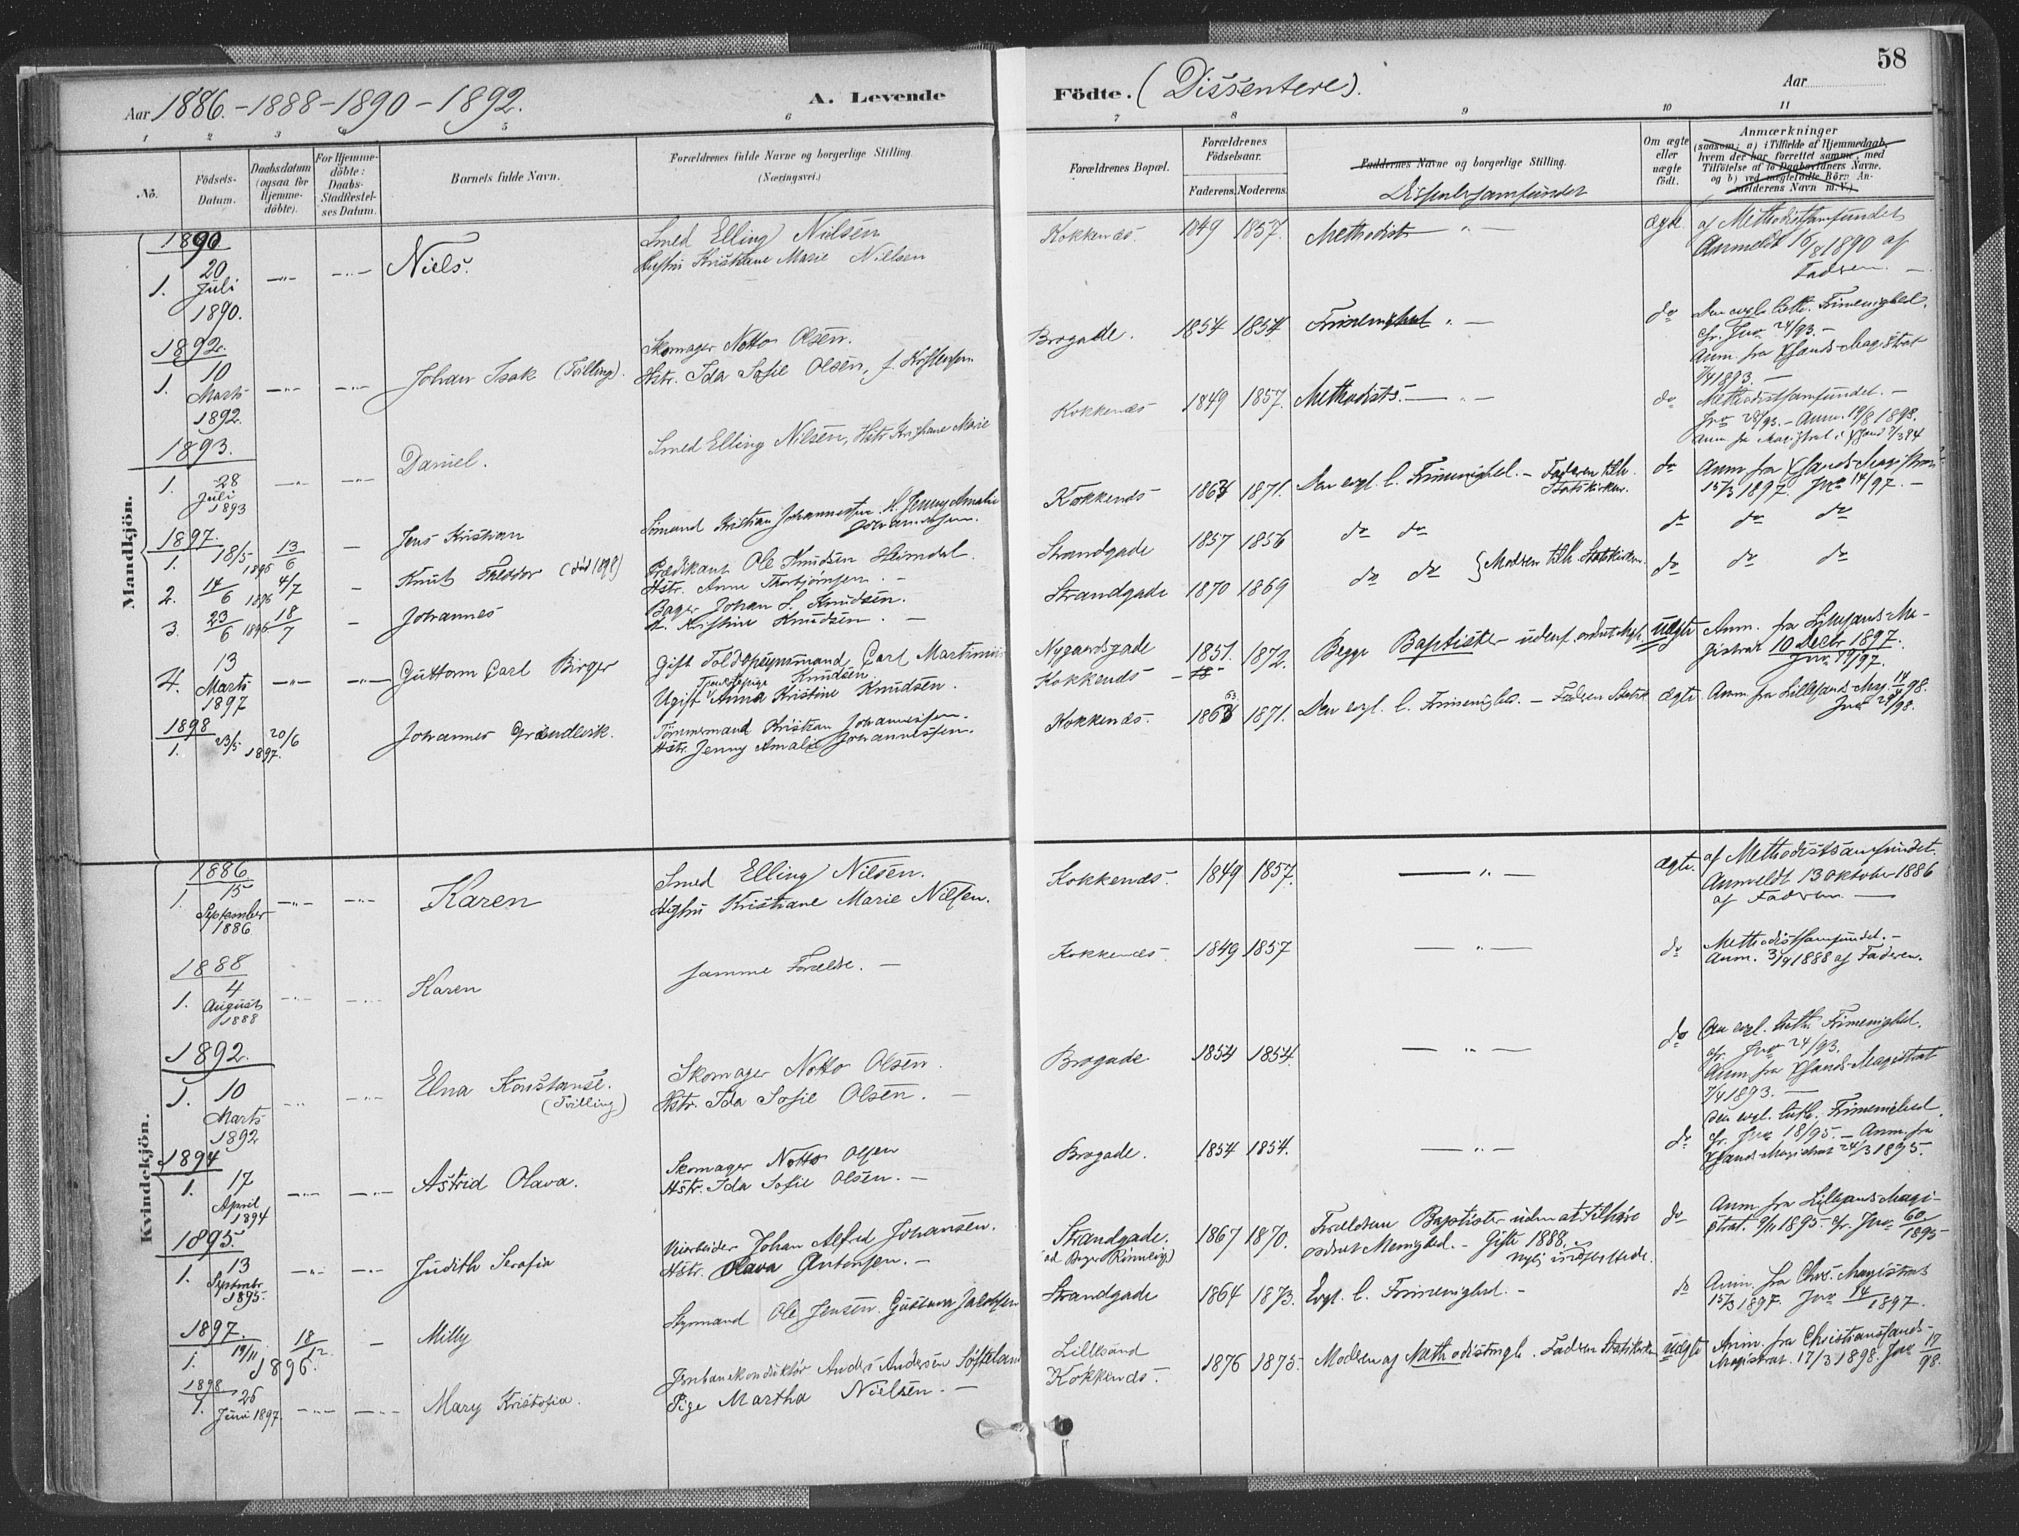 58
Aar 1886 - 1888 - 1890 - 1892. A. Levende Födte. (Dissentere). Aar
1 2 3 4 5 6 7 8 9 10 11
No. Födsels-Datum. Daabsdatum (ogsaa for Hjemme-döbte). For Hjemme-döbte: Daabs-Stadfæstel-ses Datum. Barnets fulde Navn. Forældrenes fulde Navne og borgerlige Stilling. (Næringsvei.) Forældrenes Bopæl. Forældrenes Födselsaar. Faderens. Moderens. Faddernes Navne og borgerlige Stilling. Om ægte eller uægte födt. Anmærkninger
(saasom: a) i Tilfælde af Hjemmedaab, hvem der har forrettet samme, med Tilföielse af to Daabsvidners Navne, og b) ved uægtefødte Börn An- moderens Navn m. V.)
Dissentersamfundet
Mandkjön.
1890
1. 20 Juli 1890. Niels. Smed Elling Nielsen
Hustru Kristiane Marie Nielsen
Kokkenes. 1849 1857. Methodist ægte. af Methodistsamfundet
Anmeldt 16/8 1890 af
Faderen.
1892.
1. 10 Marts 1892. Johan Isak (Tvilling). Skomager Notto Olsen.
Hstr. Ida Sofie Olsen, f.
Brogade. 1854 1854. Frimenighed do Den evgl. luth. Frimenighed.
cfr. Jno 24/93.
Anm. fra Xsands Magistrat
7/4 1893.
1893.
1. 28 Juli 1893 Daniel. Smed Elling Nilsen, Hstr. Kristiane Marie
Kokkenes 1849 1857. Methodists. do Methodistsamfundet.
Jno 28/93. - Anm. 19/8 1893.
1897.
1. 18/5 1896 13/6 Jens Kristian Sømand Kristian Johannessen. H. Jenny Amalie
Johannessen.
Kokkenes 1864 1871. Den evgl. l. Frimenighed. - Faderen tilh.
Statskirken. do Anm. fra Xsands Magistrat
15/3 1897. Jno 14/97.
2. 14/6 1896 4/7 Knut Theodor (død 1898) Prædikant Ole Knudsen Heimdal.
Hstr. Anne Thorbjørnsen.
Strandgade 1857 1856 do do do do do do
3. 23/6 1896 18/7 Johannes Bager Johan S. Knudsen.
H. Kristine Knudsen.
Strandgade 1870 1869 do do Moderen tilh. Statskirken. do do do do
4. 13 Marts 1897 Guttorm Carl Birger Gift Toldopsynsmand Carl Martinius
Knudsen
Ugift Tjenestepige Anna Kristine Knudsen.
Nygaardsgade
Kokkenes 1851. 1872. Begge Baptister udenf. ordnet Mgh. uægte Anm. fra Lillesands Ma-
gistrat 10 Decbr 1897.
Jno 79/97.
1898
1. 23/5 20/6 1897. Johannes Grændlesk. Tömmermand Kristian Johannessen.
Hstr. Jenny Amalie Johannessen.
Kokkenes. 1863 1871. Den evgl. l. Frimenighed. - Faderen Statsk. ægte Anm. fra Lillesands Mag. 14/4 98.
Jno 28/98.
Kvindekjön.
1886
1. 15 September 1886 Karen Smed Elling Nilsen.
Hustru Kristiane Marie Nilsen.
Kokkenes. 1849 1857. ægte. af Methodistsamfundet.
Anmeldt 13 Oktober 1886
af Faderen.
1888
1. 4 August 1888 Karen samme Forældre.
Kokkenes. 1849 1857 do Methodistsamfundet.
Anm. 3/9 1888 af Faderen.
1892.
1. 10 Marts 1892 Elna Konstanse. (Tvilling) Skomager Notto Olsen.
Hstr. Ida Sofie Olsen.
Brogade 1854 1854. do Den evgl. luth. Frimenighed.
cfr. Jno 24/93.
Anm. fra Xsands Magistrat
7/4 1893.
1894
1. 17 April 1894 Astrid Olava. Skomager Notto Olsen
Hstr. Ida Sofie Olsen.
Brogade. 1854 1854. do Den evgl. luth. Frimenighed.
cfr. Jno 18/95. - Anm. fra
Xsands Magistrat 24/3 1895.
1895.
1. 13 Septembr 1895. Judith Serafia Veiarbeider Johan Alfred Johansen.
Hstr. Olava Antonsen.
Strandgade. 1867 1870. Forældrene Baptister uden at tilhøre
ordnet Menighed. - Gifte 1888.
nylig indflyttede. do Anm. fra Lillesands Magi-
strat. 9/11 1895. cfr. Jno 60/1895
1897.
1. 19/11 18/12 1896. Milly Styrmand Ole Jensen. Gustava Jacobsen
Strandgade 1864 1873. Evgl. l. Frimenighed. do Anm. fra Chrs. Magistrat
15/3 1897. Jno 14/1897.
1898
1. 25 Juni 1897. Mary Kristofia. Jernbanekonduktør Anders Andersen
Pige Martha Nielsen.
Lillesand
Kokkenes. 1876 1875. Moderen af Methodistmgh. Faderen Statskirken uægte Anm. fra Christianssands
Magistrat. 17/3 1898. Jno 17/98.